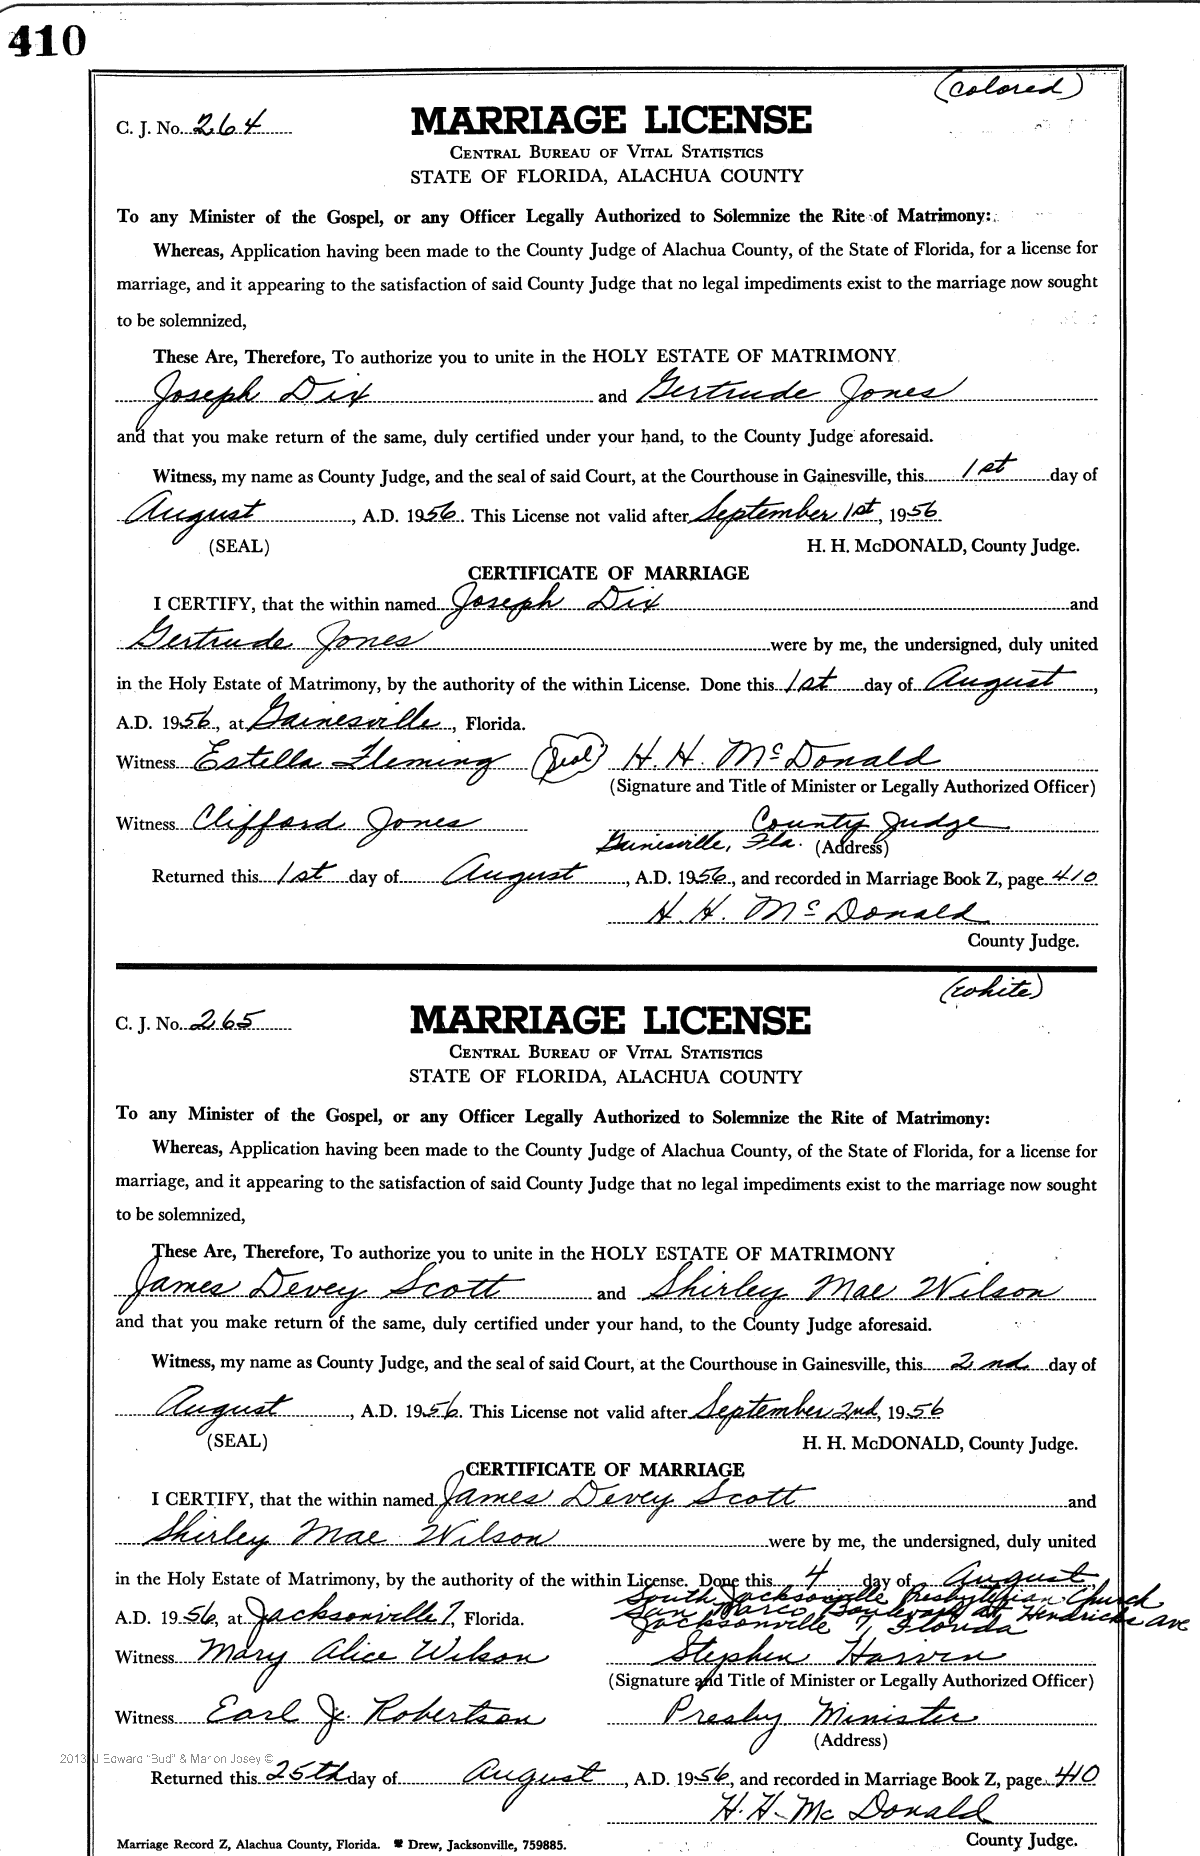 410
(colored)
C. J. No. 264
MARRIAGE LICENSE
CENTRAL BUREAU OF VITAL STATISTICS
STATE OF FLORIDA, ALACHUA COUNTY
To any Minister of the Gospel, or any Officer Legally Authorized to Solemnize the Rite of Matrimony:
Whereas, Application having been made to the County Judge of Alachua County, of the State of Florida, for a license for
marriage, and it appearing to the satisfaction of said County Judge that no legal impediments exist to the marriage now sought
to be solemnized,
These Are, Therefore, To authorize you to unite in the HOLY ESTATE OF MATRIMONY
Joseph Dix and Gertrude Jones
and that you make return of the same, duly certified under your hand, to the County Judge aforesaid.
Witness, my name as County Judge, and the seal of said Court, at the Courthouse in Gainesville, this 1st day of
August, A.D. 1956. This License not valid after September 1st, 1956
(SEAL) H. H. McDONALD, County Judge.
CERTIFICATE OF MARRIAGE
I CERTIFY, that the within named Joseph Dix and
Gertrude Jones were by me, the undersigned, duly united
in the Holy Estate of Matrimony, by the authority of the within License. Done this 1st day of August,
A.D. 1956, at Gainesville, Florida.
Witness Estella Fleming (Seal) H. H. McDonald
(Signature and Title of Minister or Legally Authorized Officer)
Witness Clifford Jones County Judge
Gainesville, Fla. (Address)
Returned this 1st day of August, A.D. 1956, and recorded in Marriage Book Z, page 410
H. H. McDonald
County Judge.
(white)
C. J. No. 265
MARRIAGE LICENSE
CENTRAL BUREAU OF VITAL STATISTICS
STATE OF FLORIDA, ALACHUA COUNTY
To any Minister of the Gospel, or any Officer Legally Authorized to Solemnize the Rite of Matrimony:
Whereas, Application having been made to the County Judge of Alachua County, of the State of Florida, for a license for
marriage, and it appearing to the satisfaction of said County Judge that no legal impediments exist to the marriage now sought
to be solemnized,
These Are, Therefore, To authorize you to unite in the HOLY ESTATE OF MATRIMONY
James Devey Scott and Shirley Mae Wilson
and that you make return of the same, duly certified under your hand, to the County Judge aforesaid.
Witness, my name as County Judge, and the seal of said Court, at the Courthouse in Gainesville, this 2nd day of
August, A.D. 1956. This License not valid after September 2nd, 1956
(SEAL) H. H. McDONALD, County Judge.
CERTIFICATE OF MARRIAGE
I CERTIFY, that the within named James Devey Scott and
Shirley Mae Wilson were by me, the undersigned, duly united
in the Holy Estate of Matrimony, by the authority of the within License. Done this 4 day of August
South Jacksonville Presbyterian Church
San Marco Boulevard at Hendricks ave
A.D. 1956, at Jacksonville 7, Florida. Jacksonville 7, Florida
Witness Mary Alice Wilson Stephen Harvin
(Signature and Title of Minister or Legally Authorized Officer)
Witness Earl J. Robertson Presby. Minister
(Address)
2013 J Edward "Bud" & Marion Josey ©
Returned this 25th day of August, A.D. 1956, and recorded in Marriage Book Z, page 410
H. H. McDonald
County Judge.
Marriage Record Z, Alachua County, Florida. Drew, Jacksonville, 759885.